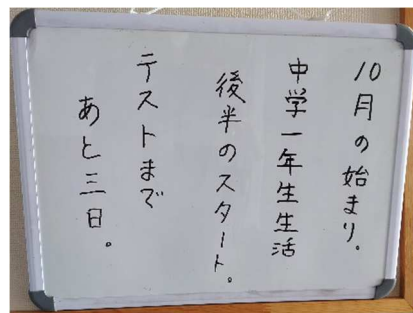 10月の始まり。
中学一年生生活
後半のスタート。
テストまで
あと三日。